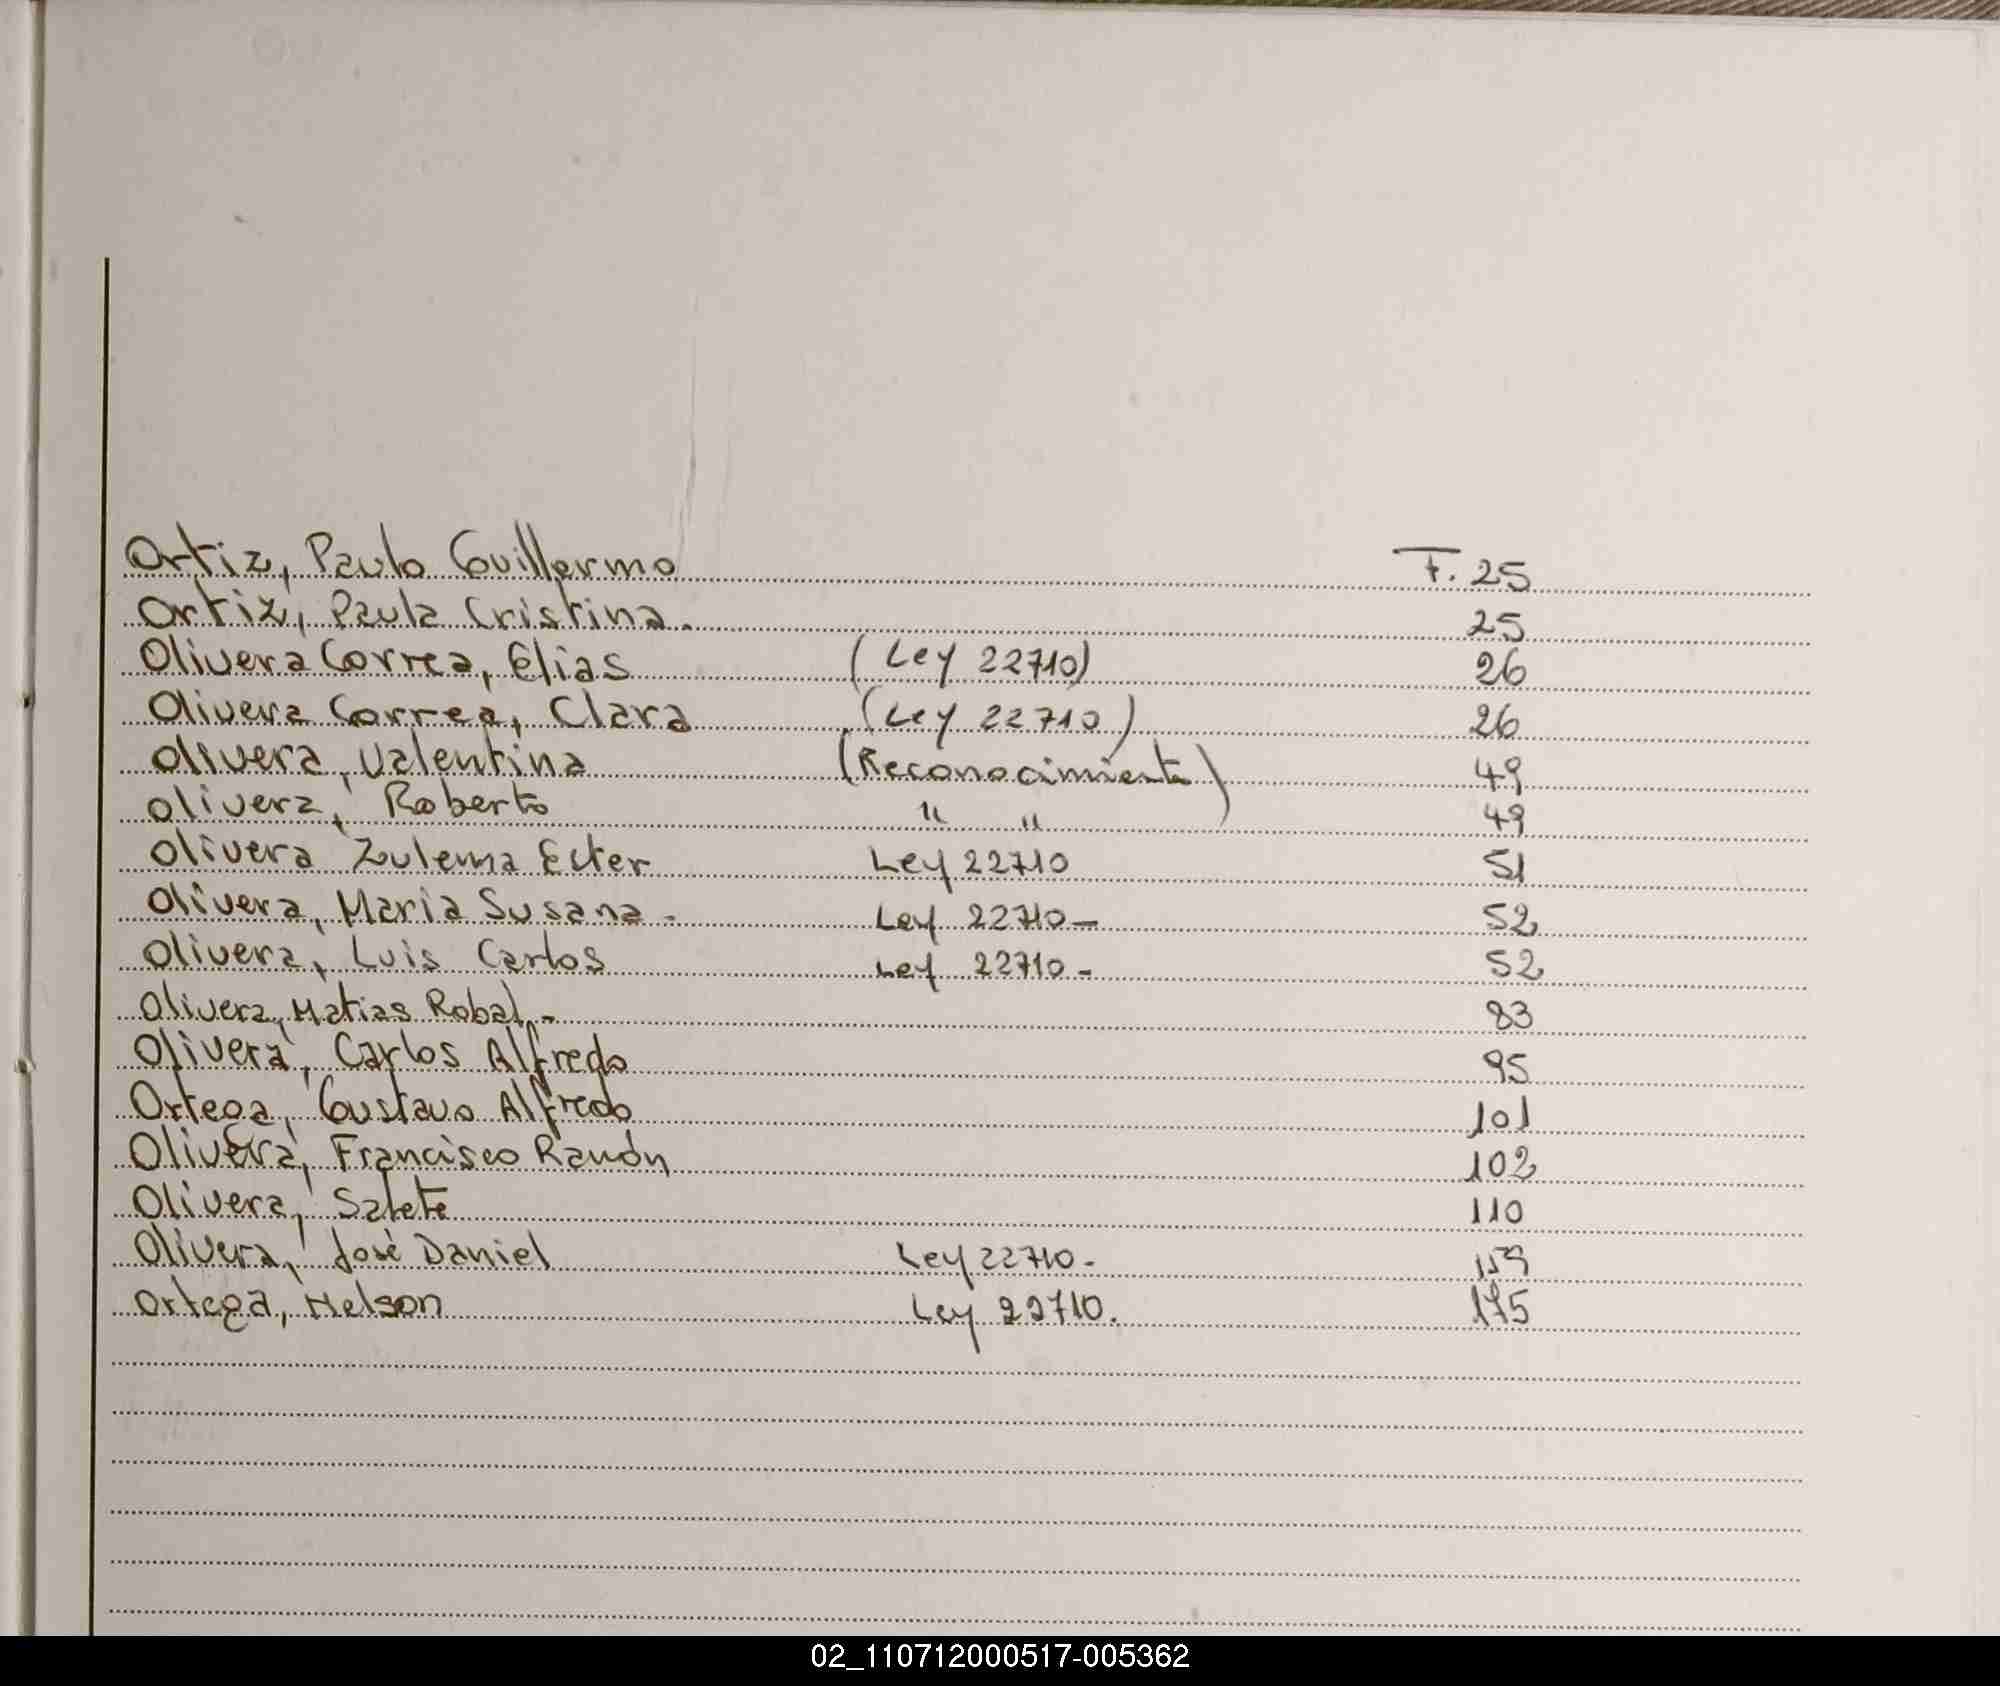 Ortiz, Paulo Guillermo F. 25
Ortiz, Paula Cristina. 25
Olivera Correa, Elias (Ley 22710) 26
Olivera Correa, Clara (Ley 22710) 26
Olivera, Valentina (Reconocimiento) 49
Olivera, Roberto " " 49
Olivera Zulema Ester Ley 22710 51
Olivera, Maria Susana - Ley 22710 - 52
Olivera, Luis Carlos Ley 22710 - 52
Olivera, Matias Robal - 83
Olivera, Carlos Alfredo 95
Ortega, Gustavo Alfredo 101
Olivera, Francisco Ramón 102
Olivera, Salete 110
Olivera, José Daniel Ley 22710 - 159
Ortega, Nelson Ley 22710. 175
02_110712000517-005362